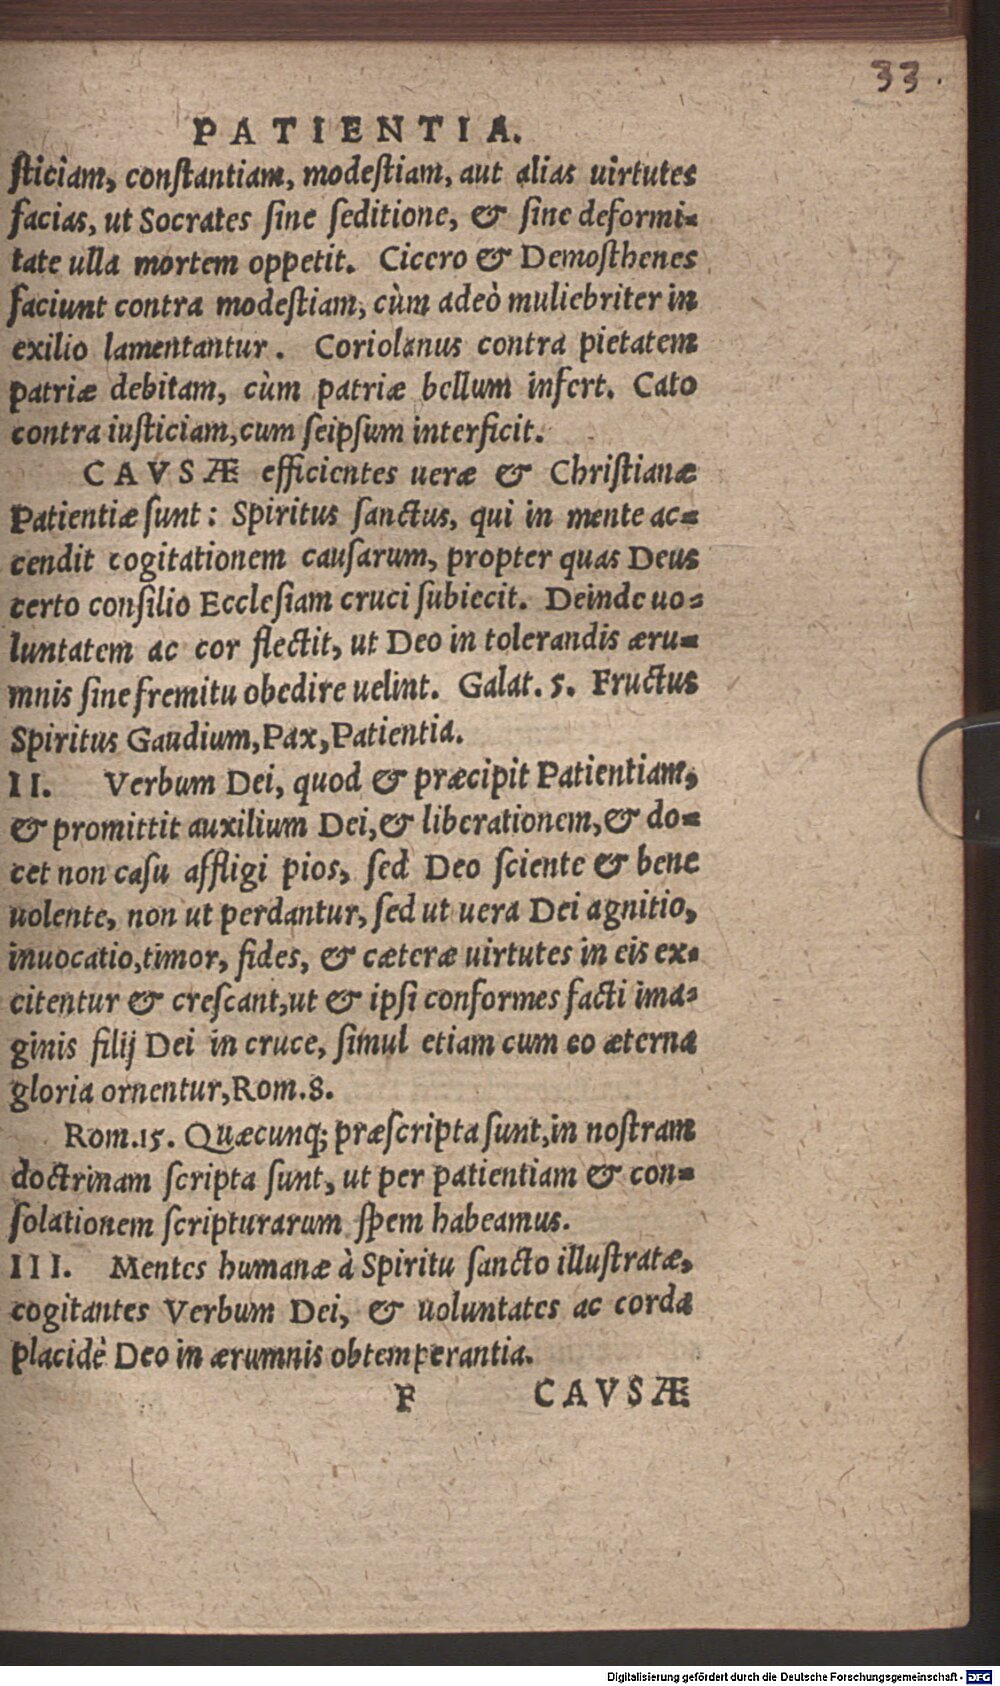 33.
PATIENTIA.
ſticiam, conſtantiam, modeſtiam, aut alias uirtutes
facias, ut Socrates ſine ſeditione, & ſine deformi-
tate ulla mortem oppetit. Cicero & Demoſthenes
faciunt contra modeſtiam, cùm adeò muliebriter in
exilio lamentantur. Coriolanus contra pietatem
patriæ debitam, cùm patriæ bellum infert. Cato
contra iuſticiam, cum ſeipſum interficit.
CAVSÆ efficientes ueræ & Chriſtianæ
Patientiæ ſunt: Spiritus ſanctus, qui in mente ac-
cendit cogitationem cauſarum, propter quas Deus
certo conſilio Eccleſiam cruci ſubiecit. Deinde uo-
luntatem ac cor flectit, ut Deo in tolerandis æru-
mnis ſine fremitu obedire uelint. Galat. 5. Fructus
Spiritus Gaudium, Pax, Patientia.
II. Verbum Dei, quod & præcipit Patientiam,
& promittit auxilium Dei, & liberationem, & do-
cet non caſu affligi pios, ſed Deo ſciente & bene
uolente, non ut perdantur, ſed ut uera Dei agnitio,
inuocatio, timor, fides, & cæteræ uirtutes in eis ex-
citentur & creſcant, ut & ipſi conformes facti ima-
ginis filij Dei in cruce, ſimul etiam cum eo æterna
gloria ornentur, Rom. 8.
Rom. 15. Quæcunq; præſcripta ſunt, in noſtram
doctrinam ſcripta ſunt, ut per patientiam & con-
ſolationem ſcripturarum ſpem habeamus.
III. Mentes humanæ à Spiritu ſancto illuſtratæ,
cogitantes Verbum Dei, & uoluntates ac corda
placidè Deo in ærumnis obtemperantia.
F CAVSÆ
Digitalisierung gefördert durch die Deutsche Forschungsgemeinschaft - DFG